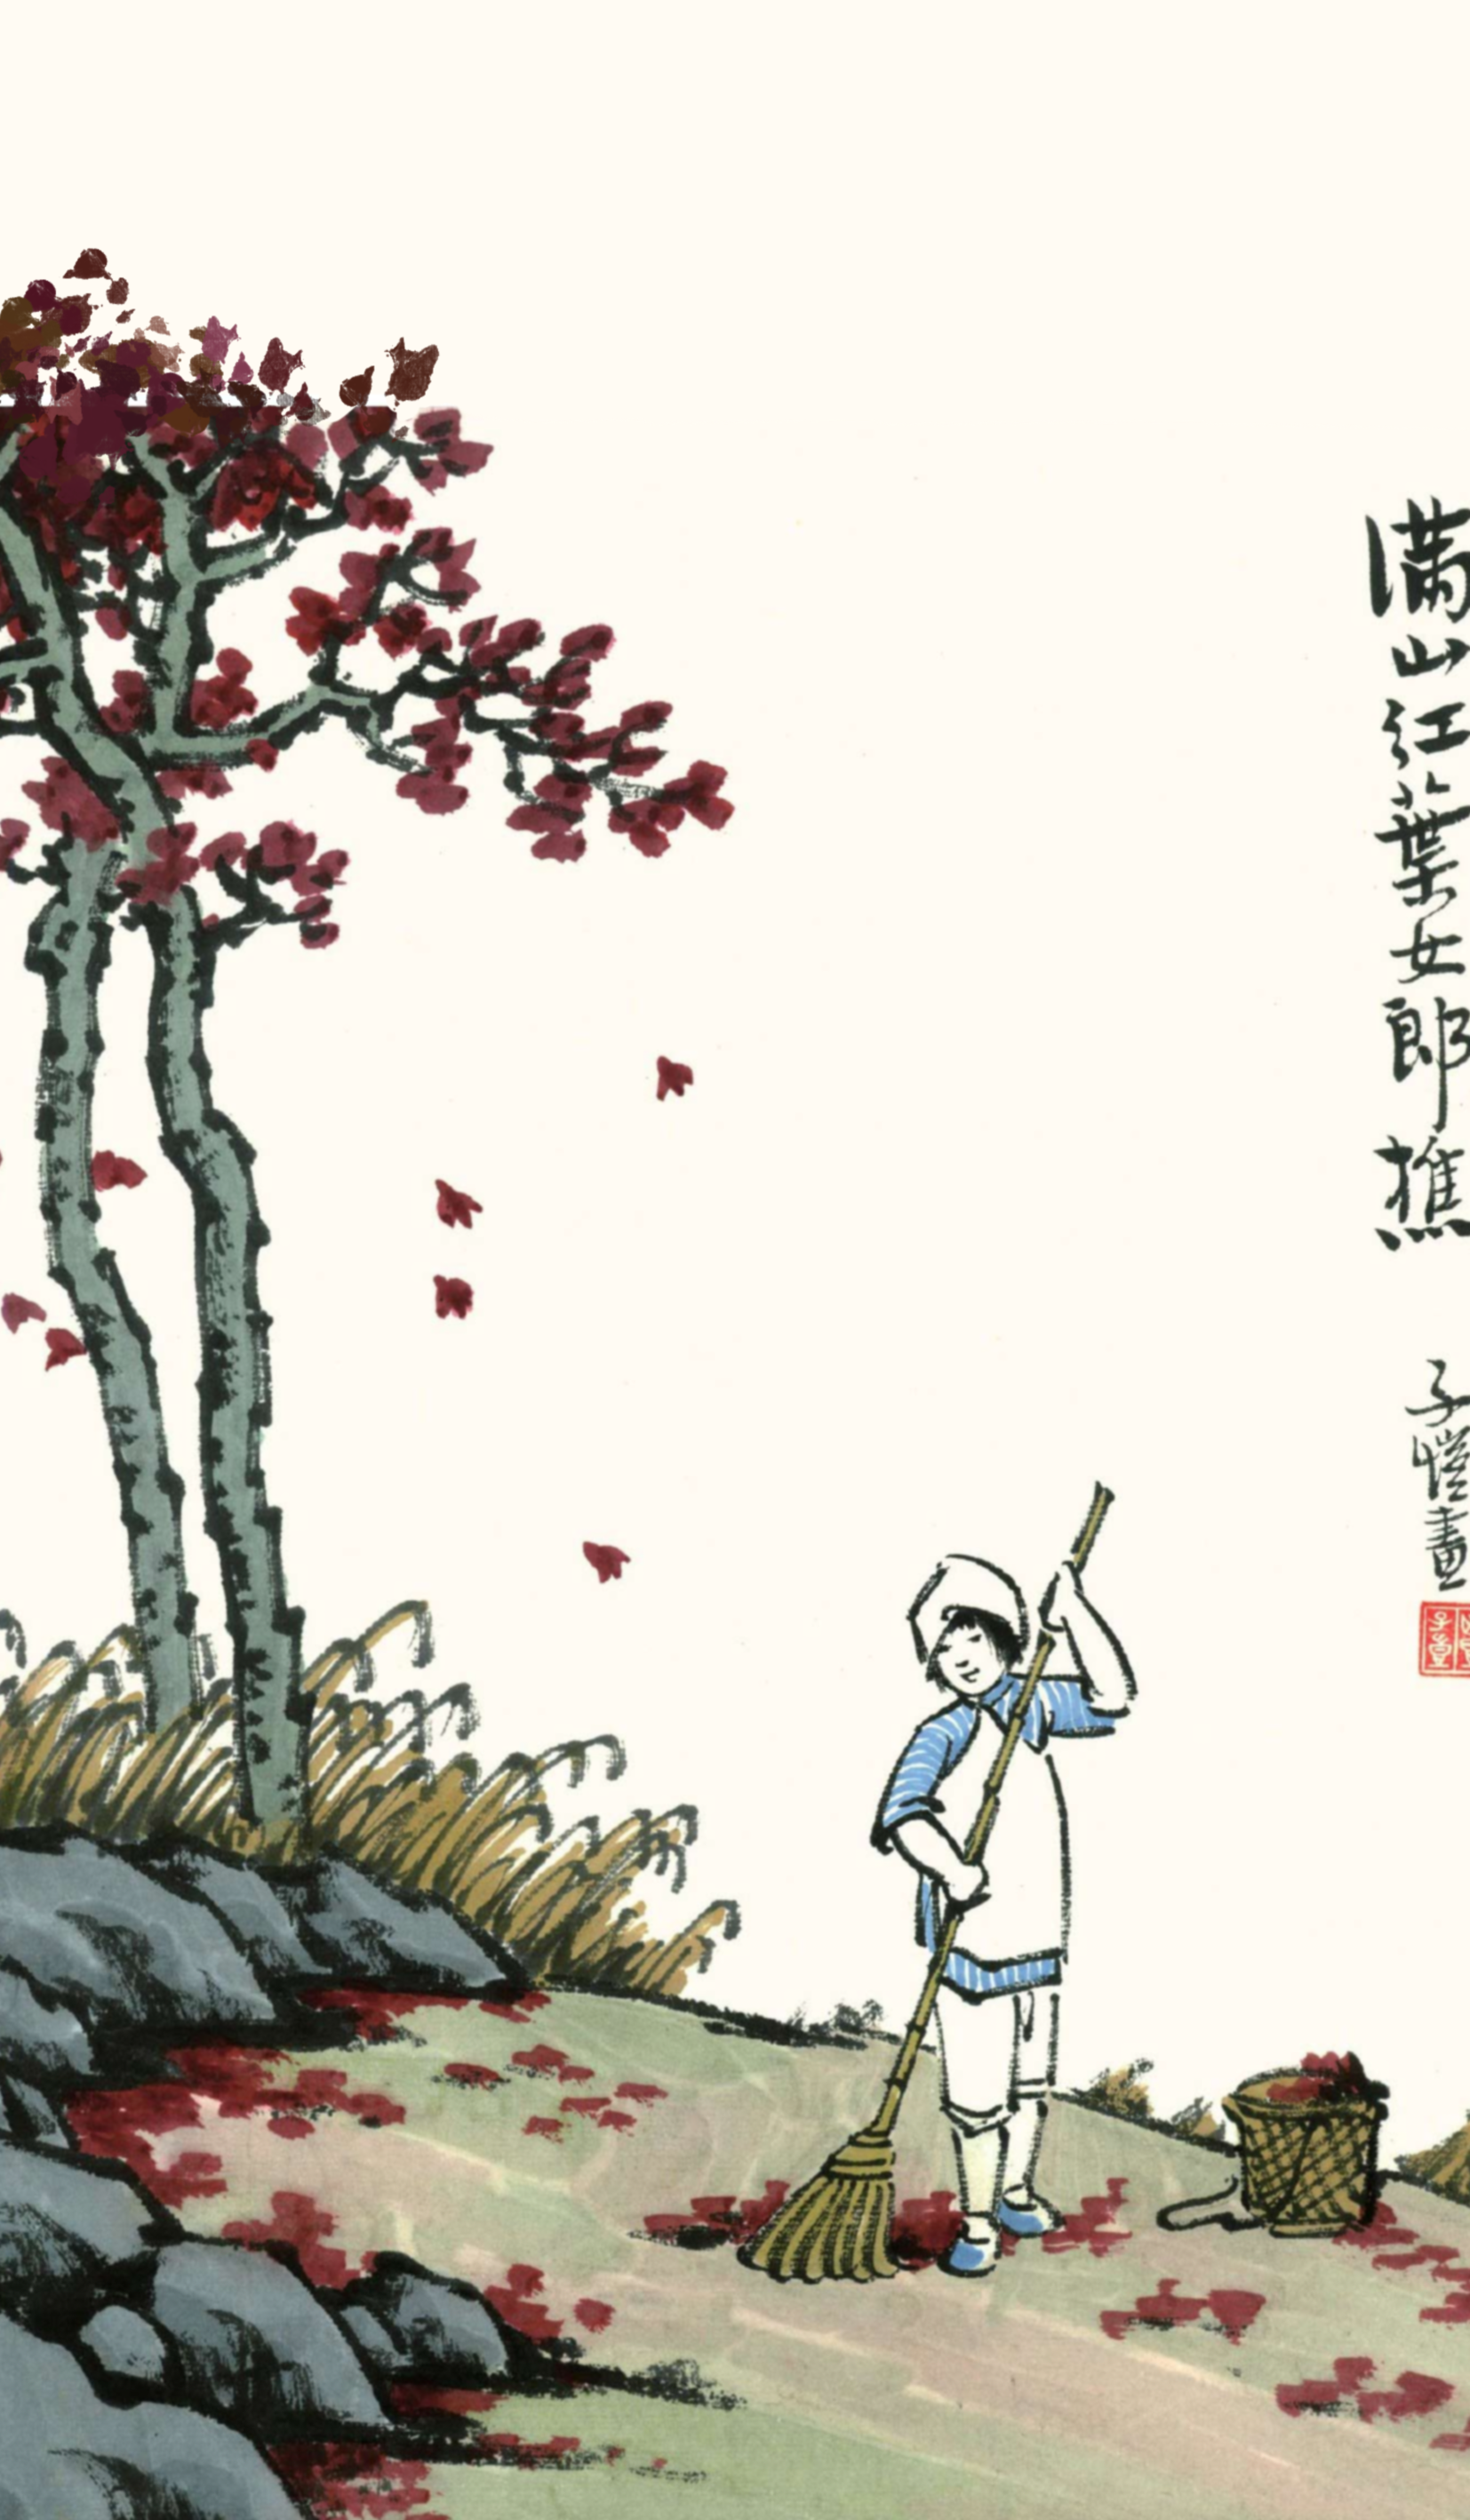 满山红葉女郎樵
子愷畫